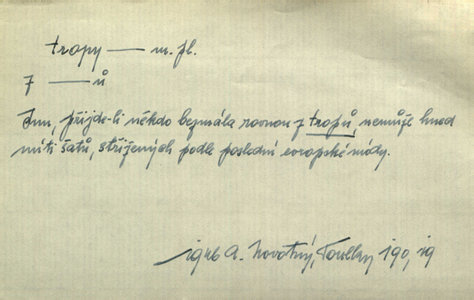 tropy — m. pl.
z — ů
Inu, přijde-li někdo bezmála rovnou z tropů, nemůže hned
míti šatů, střižených podle poslední evropské módy.
1946 A. Novotný, 190, 19